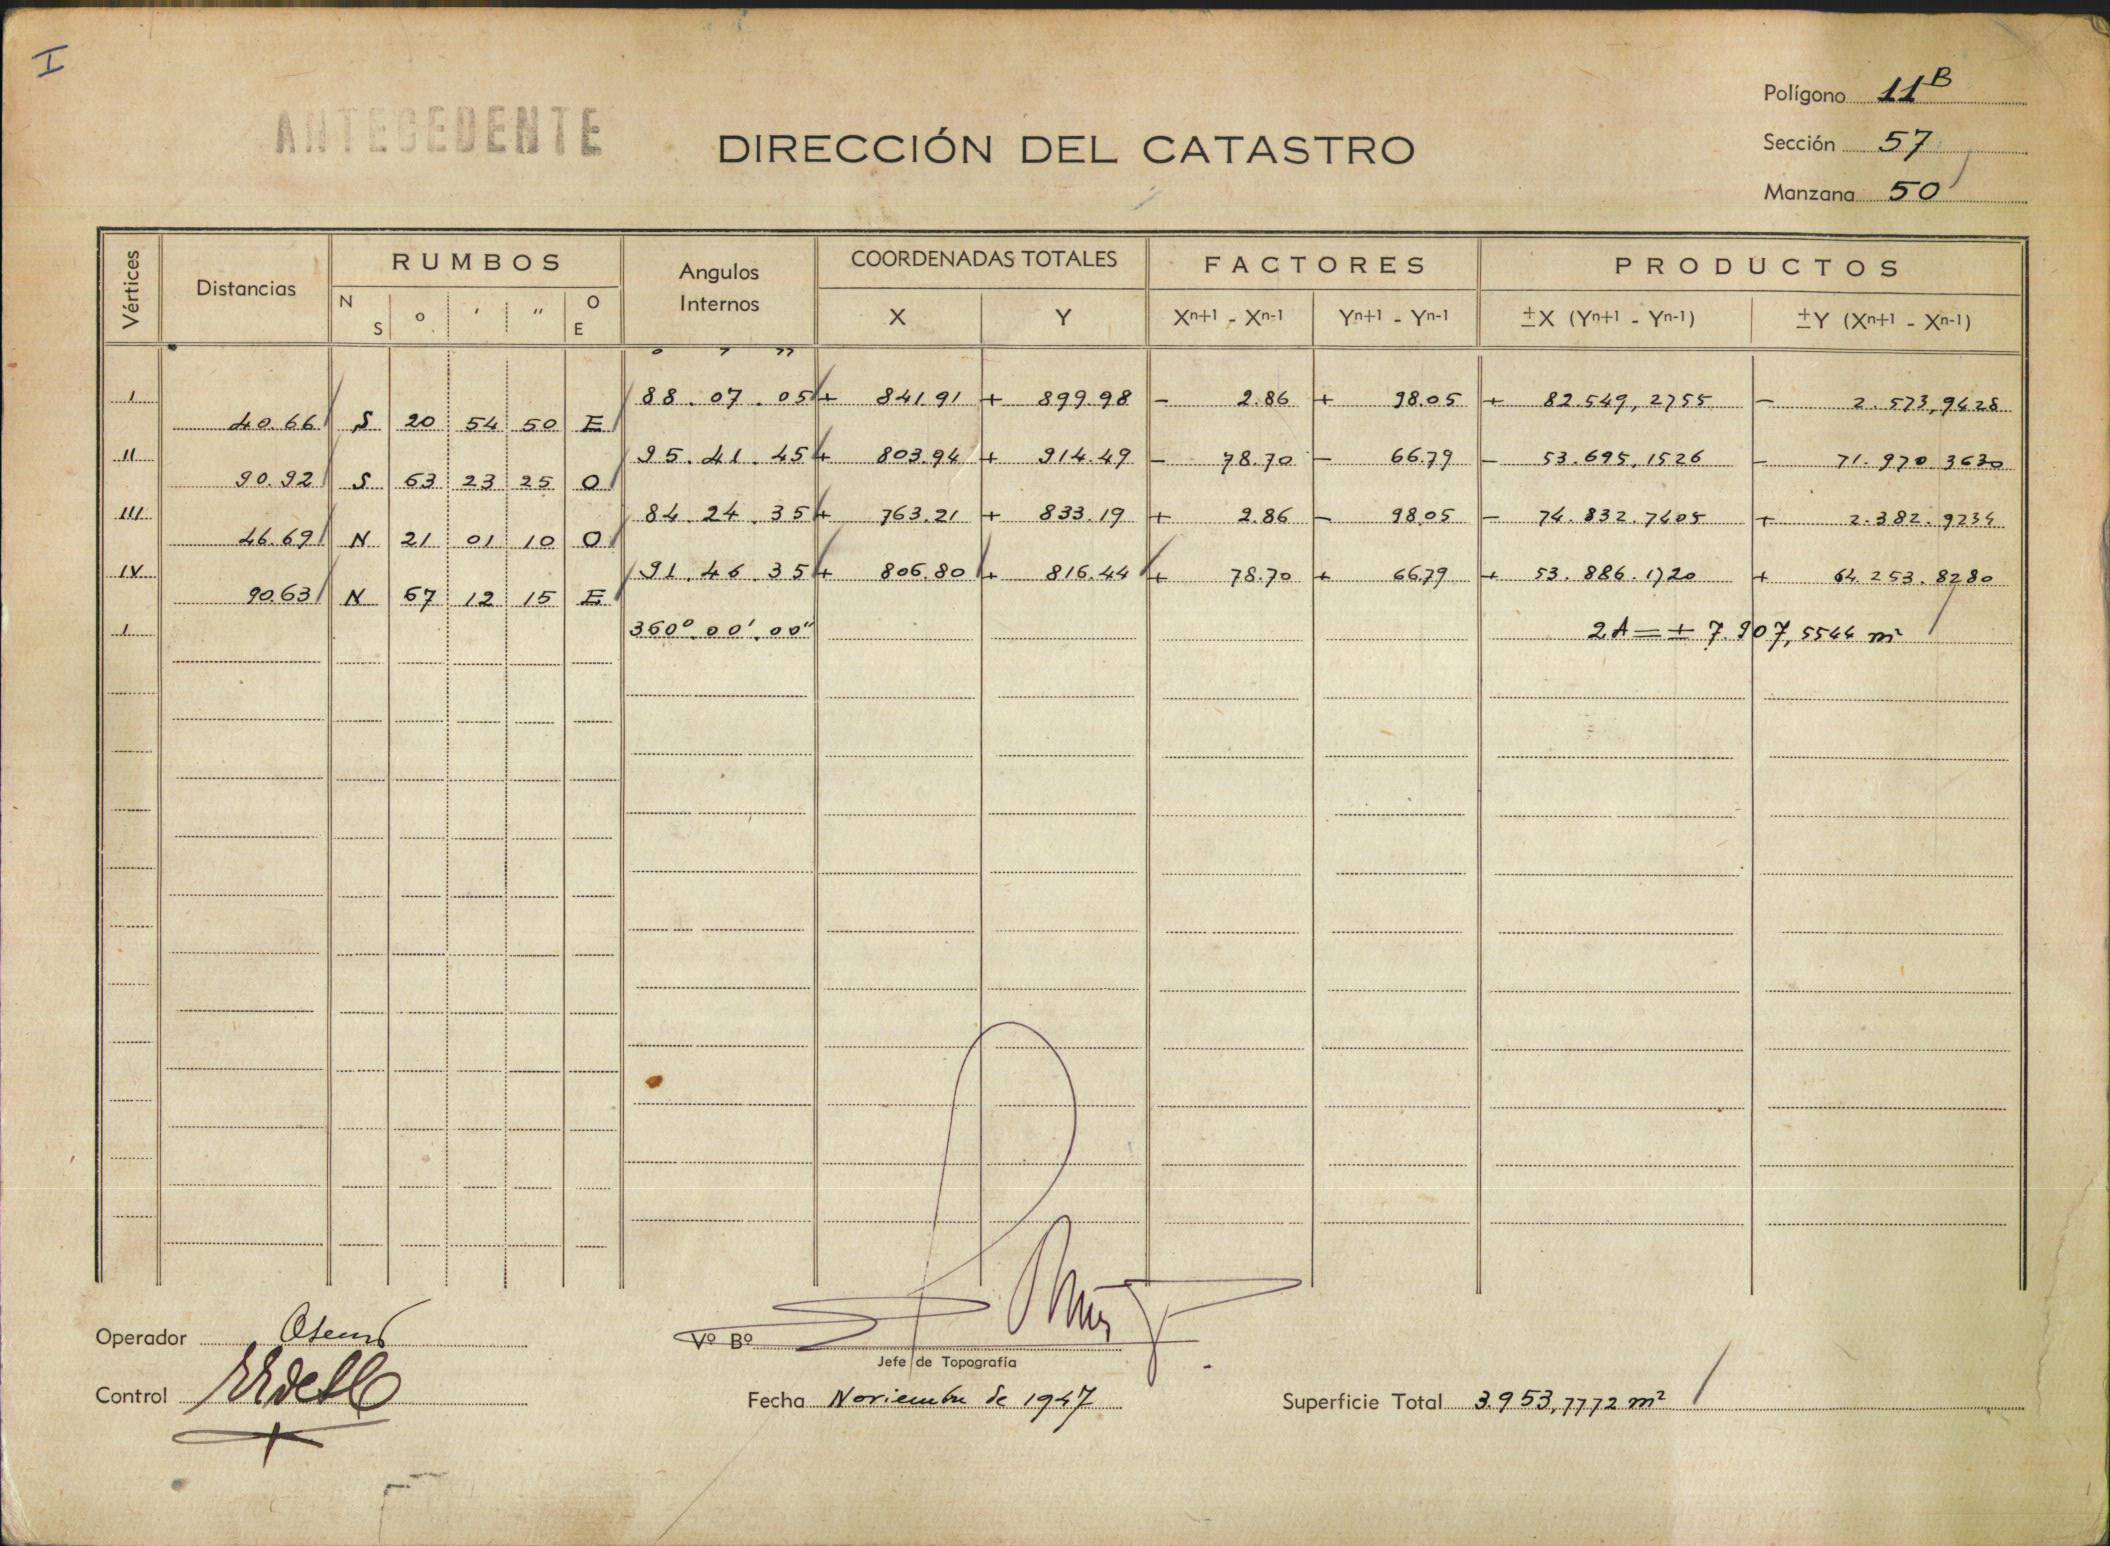 I
Polígono 11B
ANTECEDENTE
DIRECCIÓN DEL CATASTRO
Sección 57
Manzana 50
Vértices Distancias RUMBOS Angulos Internos COORDENADAS TOTALES FACTORES PRODUCTOS
N S ° ' " O E X Y Xn+1 - Xn-1 Yn+1 - Yn-1 ±X (Yn+1 - Yn-1) ±Y (Xn+1 - Xn-1)
° ' "
I 88. 07. 05 + 841.91 + 899.98 - 2.86 + 98.05 + 82.549,2755 - 2.573,9428
40.66 S 20 54 50 E
II 95. 41. 45 + 803.94 + 914.49 - 78.70 - 66.79 - 53.695,1526 - 71.970 3630
90.92 S 63 23 25 O
III 84. 24. 35 + 763.21 + 833.19 + 2.86 - 98.05 - 74.832.7405 + 2.382.9234
46.69 N 21 01 10 O
IV 91. 46. 35 + 806.80 + 816.44 + 78.70 + 66.79 + 53.886.1720 + 64.253.8280
90.63 N 67 12 15 E
I 360° 00' 00" 2A = ± 7.907,5544 m²
Operador
Vº Bº
Jefe de Topografía
Control
Fecha Noviembre de 1947
Superficie Total 3.953,7772 m²